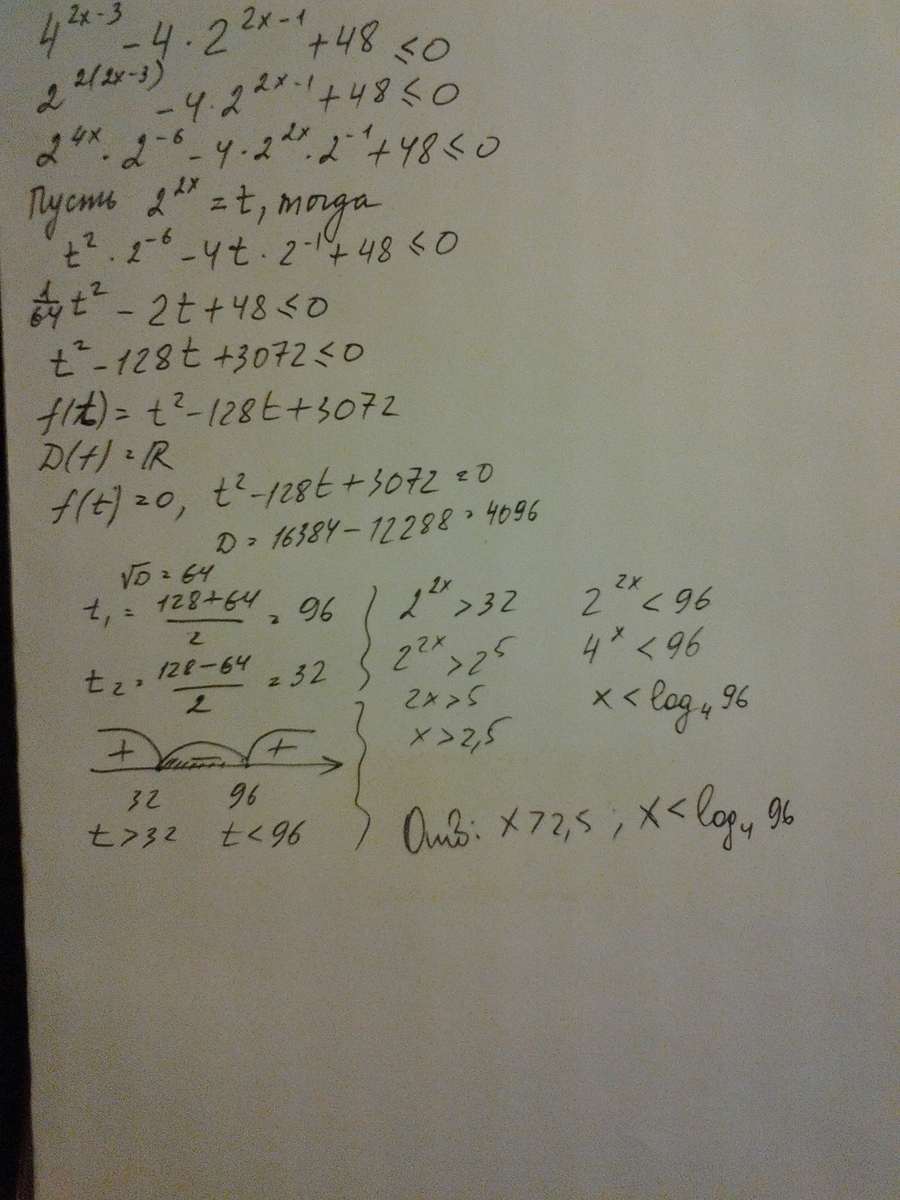 4^{2x-3} - 4 · 2^{2x-1} + 48 ≤ 0
2^{2(2x-3)} - 4 · 2^{2x-1} + 48 ≤ 0
2^{4x} · 2^{-6} - 4 · 2^{2x} · 2^{-1} + 48 ≤ 0
Пусть 2^{2x} = t, тогда
t² · 2^{-6} - 4t · 2^{-1} + 48 ≤ 0
1/64 t² - 2t + 48 ≤ 0
t² - 128t + 3072 ≤ 0
f(t) = t² - 128t + 3072
D(f) = ℝ
f(t) = 0, t² - 128t + 3072 = 0
D = 16384 - 12288 = 4096
√D = 64
t₁ = (128+64)/2 = 96
t₂ = (128-64)/2 = 32
+ +
32 96
t > 32 t < 96
2^{2x} > 32 2^{2x} < 96
2^{2x} > 2^5 4^x < 96
2x > 5 x < log₄ 96
x > 2,5
Отв: x > 2,5 ; x < log₄ 96